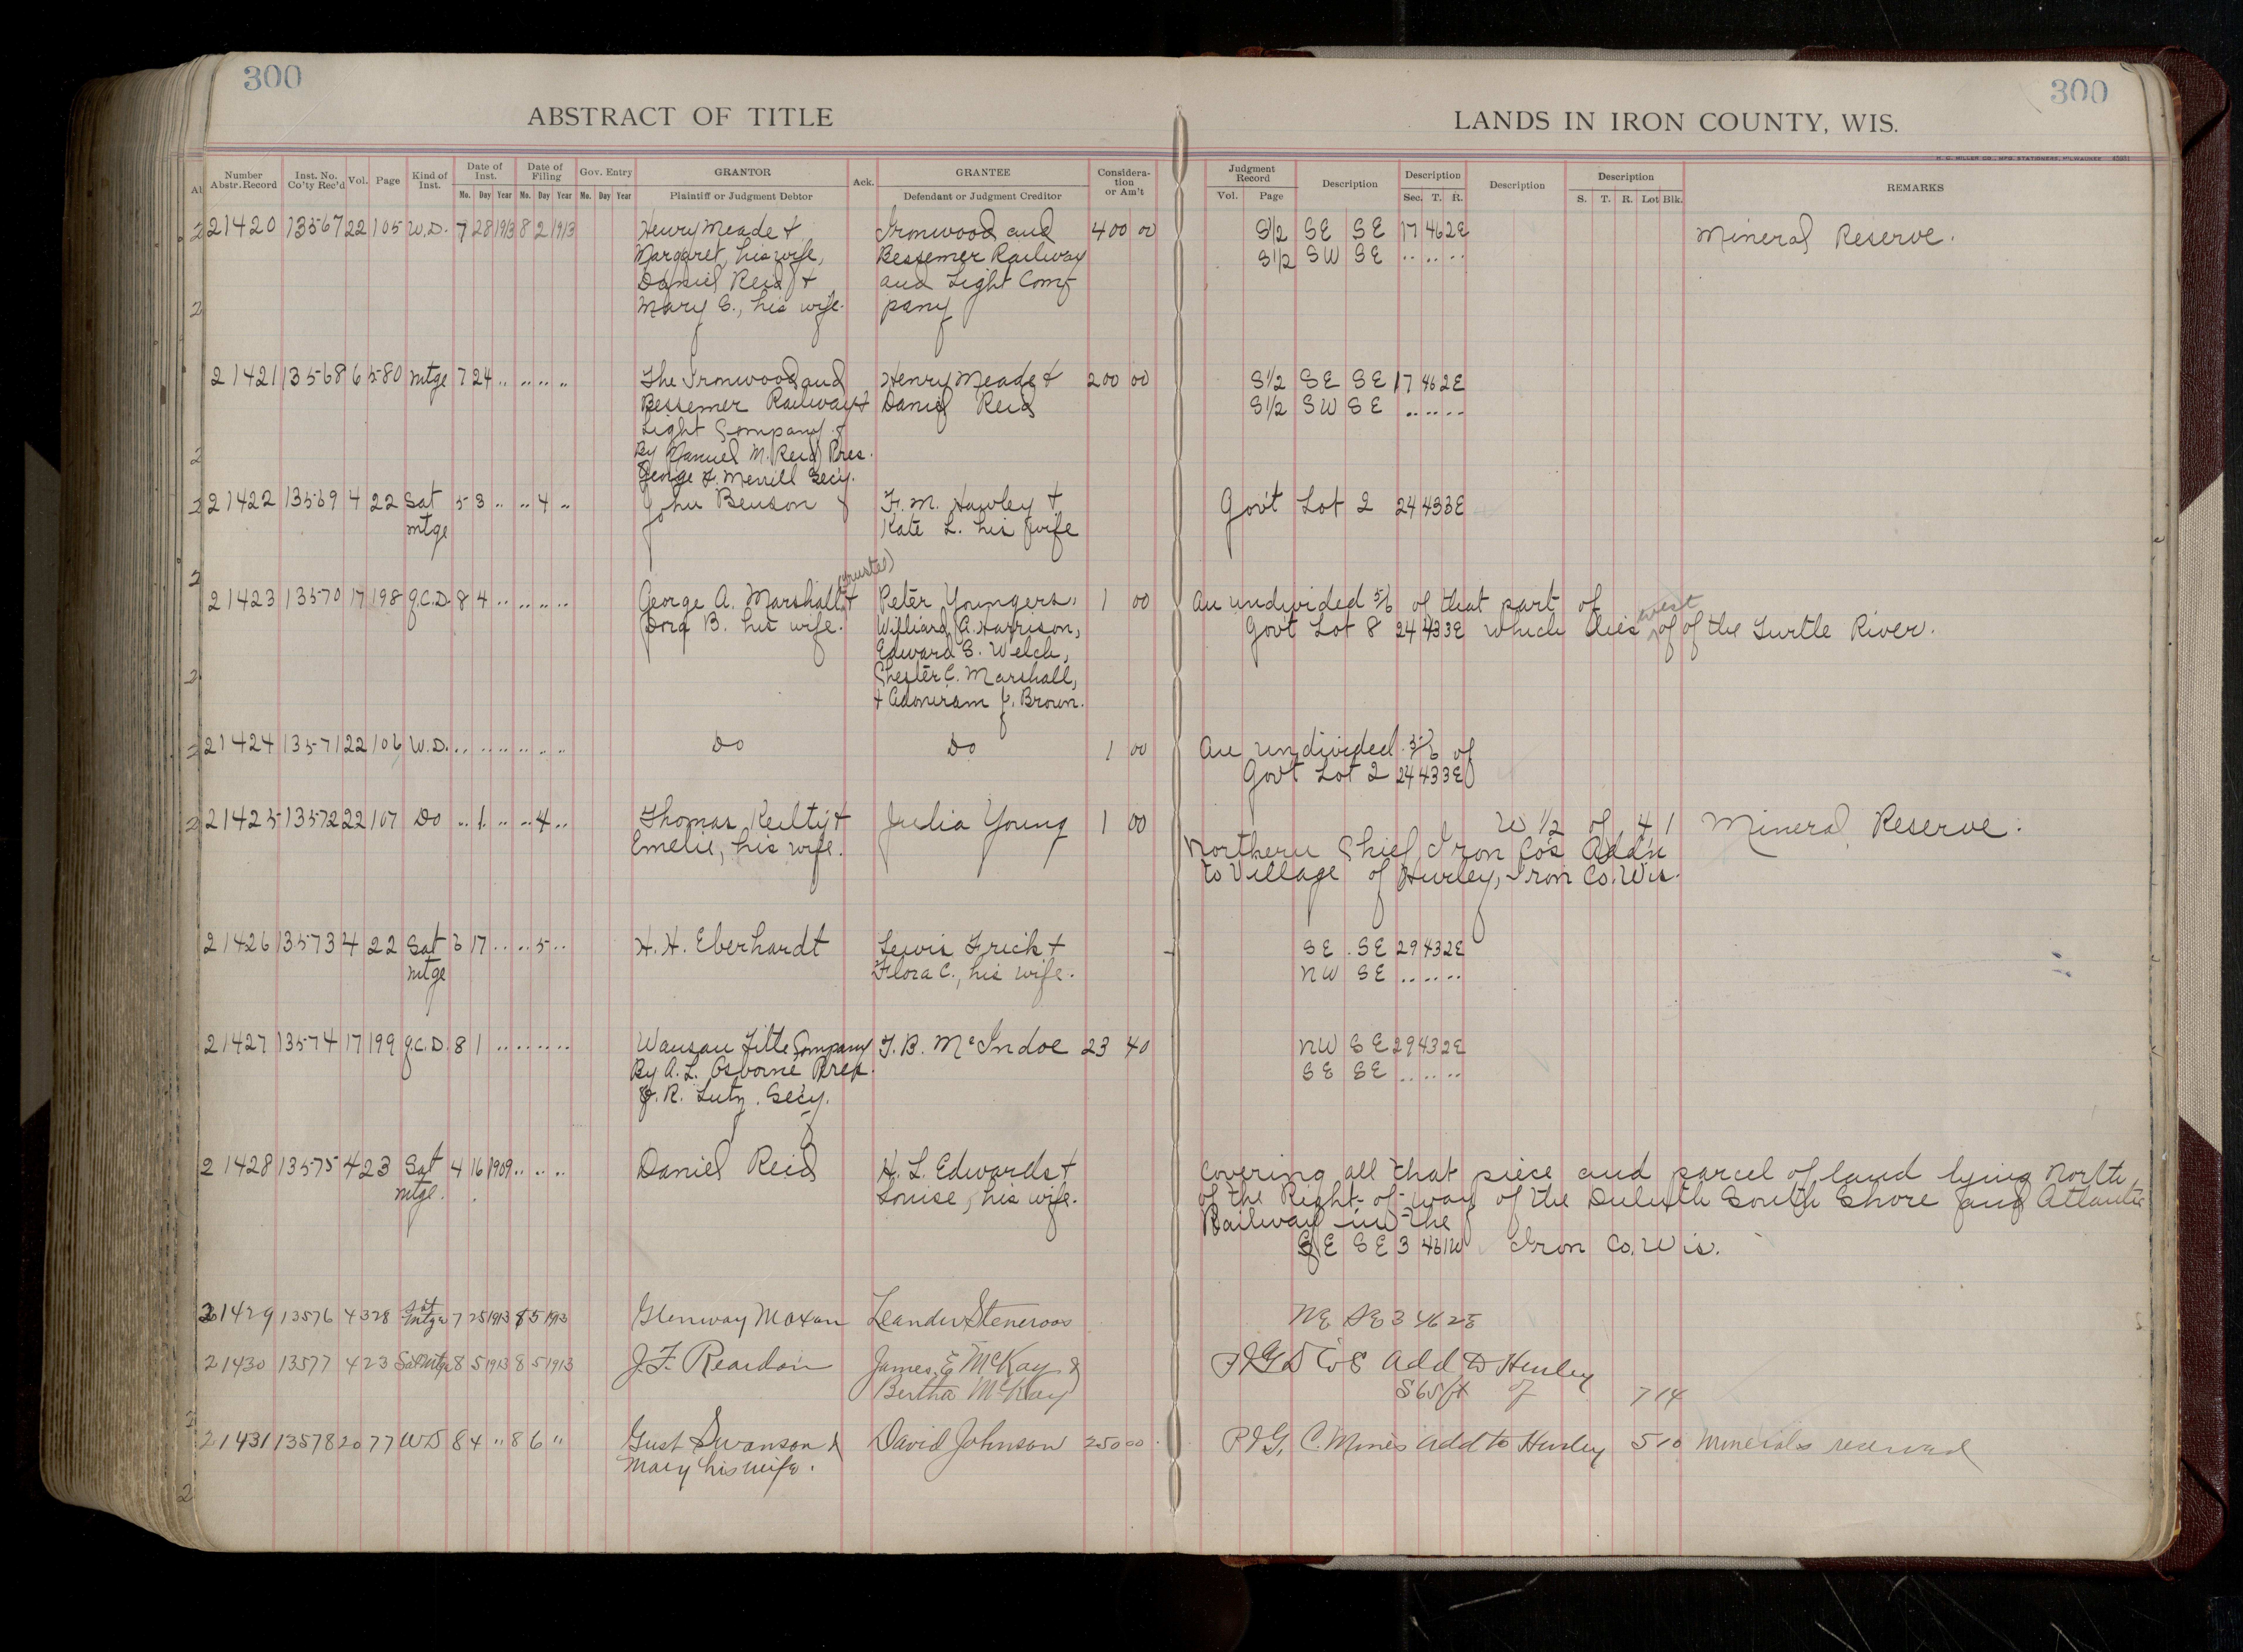 300
300
ABSTRACT OF TITLE
LANDS IN IRON COUNTY, WIS.
H. G. MILLER CO., MFG. STATIONERS, MILWAUKEE
Number Abstr. Record Inst. No. Co'ty Rec'd Vol. Page Kind of Inst. Date of Inst. Mo. Day Year Date of Filing Mo. Day Year Gov. Entry Mo. Day Year GRANTOR Plaintiff or Judgment Debtor Ack. GRANTEE Defendant or Judgment Creditor Considera-tion or Am't
Judgment Record Vol. Page Description Description Sec. T. R. Description Description S. T. R. Lot Blk. REMARKS
21420 13567 22 105 W.D. 7 28 1913 8 2 1913 Henry Meade + Ironwood and 400 00 S1/2 SE SE 17 46 2E Mineral Reserve.
Margaret, his wife, Bessemer Railway S1/2 SW SE .. .. ..
Daniel Reid + and Light Com-
Mary E., his wife. pany
21421 13568 6 580 Mtge 7 24 .. .. .. .. The Ironwood and Henry Meade + 200 00 S1/2 SE SE 17 46 2E
Bessemer Railway + Daniel Reid S1/2 SW SE .. .. ..
Light Company
By Daniel M. Reid Pres.
George F. Merrill Secy.
21422 13569 4 22 Sat 5 3 .. .. 4 .. John Benson F. M. Hawley + Gov't Lot 2 24 43 3E
Mtge Kate L. his wife
(trustee)
21423 13570 17 198 Q.C.D 8 4 .. .. .. .. George A. Marshall + Peter Youngers, 1 00 An undivided 5/6 of that part of
Dora B. his wife. Williard A. Harrison, Gov't Lot 8 24 43 3E which lies west of of the Turtle River.
Edward S. Welch,
Chester C. Marshall,
+ Adoniram J. Brown.
21424 13571 22 106 W.D. .. .. .. .. .. .. Do Do 1 00 An undivided 5/6 of
Gov't Lot 2 24 43 3E
21425 13572 22 107 Do .. 1 .. .. 4 .. Thomas Keilty + Julia Young 1 00 W 1/2 of 4 1 Mineral Reserve.
Emelie, his wife. Northern Chief Iron Co's Add'n
to Village of Hurley, Iron Co. Wis.
21426 13573 4 22 Sat 6 17 .. .. 5 .. H. H. Eberhardt Lewis Frick + SE SE 29 43 2E
Mtge Flora C., his wife. NW SE .. .. ..
21427 13574 17 199 Q.C.D. 8 1 .. .. .. .. Wausau Title Company J. B. McIndoe 23 40 NW SE 29 43 2E
By A. L. Osborne Pres. SE SE .. .. ..
J. R. Lutz. Secy.
21428 13575 4 23 Sat 4 16 1909 .. .. .. Daniel Reid H. L. Edwards + Covering all that piece and parcel of land lying North
Mtge. Louise, his wife. of the Right-of-way of the Duluth South Shore and Atlantic
Railway in the
SE SE 3 46 1W Iron Co. Wis.
21429 13576 4 328 Sat Mtge 7 25 1913 8 5 1913 Glenway Maxon Leander Steneroos NE SE 3 46 2E
21430 13577 4 23 Sat Mtge 8 5 1913 8 5 1913 J. F. Reardon James E McKay & Add to Hurley
Bertha McKay S 65 ft of 7 14
21431 13578 20 77 WD 8 4 " 8 6 " Gust Swanson & David Johnson 250 00 P & G, C. Mines Add to Hurley 5 10 Minerals reserved
Mary his wife.